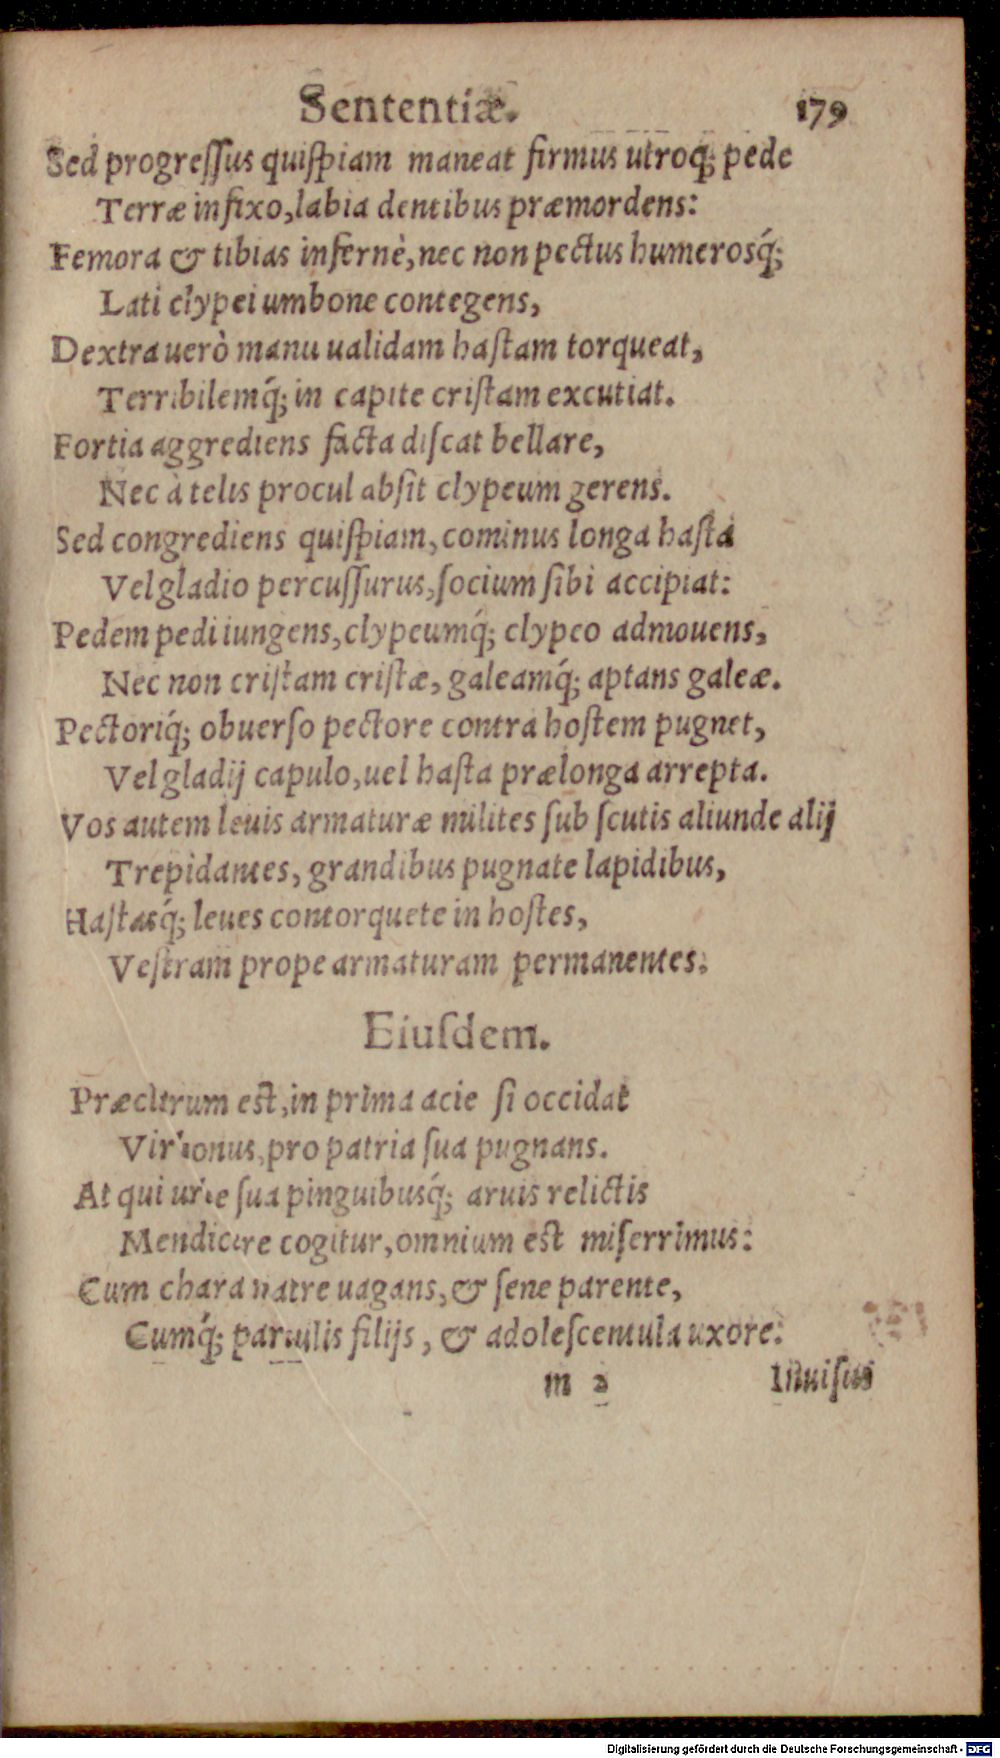 Sententiæ. 179
Sed progreſſus quiſpiam maneat firmus utroq; pede
Terræ infixo, labia dentibus præmordens:
Femora & tibias infernè, nec non pectus humerosq́;
Lati clypei umbone contegens,
Dextra uerò manu ualidam haſtam torqueat,
Terribilemq́; in capite criſtam excutiat.
Fortia aggrediens facta diſcat bellare,
Nec à telis procul abſit clypeum gerens.
Sed congrediens quiſpiam, cominus longa haſta
Vel gladio percuſſurus, ſocium ſibi accipiat:
Pedem pedi iungens, clypeumq́; clypeo admouens,
Nec non criſtam criſtæ, galeamq́; aptans galeæ.
Pectoriq́; obuerſo pectore contra hoſtem pugnet,
Vel gladij capulo, uel haſta prælonga arrepta.
Vos autem leuis armaturæ milites ſub ſcutis aliunde alij
Trepidantes, grandibus pugnate lapidibus,
Haſtasq́; leues contorquete in hoſtes,
Veſtram prope armaturam permanentes.
Eiuſdem.
Præclarum eſt, in prima acie ſi occidat
Vir bonus, pro patria ſua pugnans.
At qui urbe ſua pinguibusq́; aruis relictis
Mendicare cogitur, omnium eſt miſerrimus:
Cum chara matre uagans, & ſene parente,
Cumq́; paruulis filijs, & adoleſcentula uxore.
m 2 Inuiſus
Digitalisierung gefördert durch die Deutsche Forschungsgemeinschaft - DFG